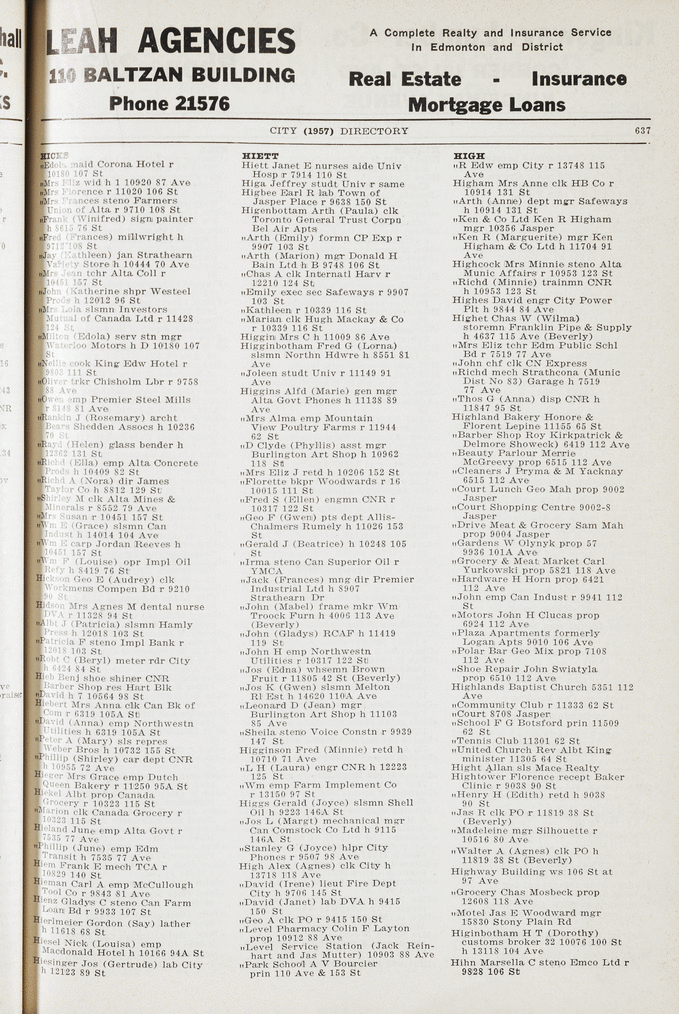 hall
KS
LEAH AGENCIES
110 BALTZAN BUILDING
Phone 21576
A Complete Realty and Insurance Service
In Edmonton and District
Real Estate - Insurance
Mortgage Loans
CITY (1957) DIRECTORY 637
HICKS
„Edola maid Corona Hotel r
10180 107 St
„Mrs Eliz wid h 1 10920 87 Ave
„Mrs Florence r 11020 106 St
„Mrs Frances steno Farmers
Union of Alta r 9710 108 St
„Frank (Winifred) sign painter
h 8615 76 St
„Fred (Frances) millwright h
9712 108 St
„Jay (Kathleen) jan Strathearn
Variety Store h 10444 70 Ave
„Mrs Jean tchr Alta Coll r
10451 157 St
„John (Katherine shpr Westeel
Prods h 12012 96 St
„Mrs Lola slsmn Investors
Mutual of Canada Ltd r 11428
124 St
„Milton (Edola) serv stn mgr
Waterloo Motors h D 10180 107
St
„Nellie cook King Edw Hotel r
9803 111 St
„Oliver trkr Chisholm Lbr r 9758
88 Ave
„Owen emp Premier Steel Mills
r 8148 81 Ave
„Rankin J (Rosemary) archt
Bears Shedden Assocs h 10236
70 St
„Rayd (Helen) glass bender h
12262 131 St
„Richd (Ella) emp Alta Concrete
Prods h 10409 82 St
„Richd A (Nora) dir James
Taylor Co h 8812 129 St
„Shirley M clk Alta Mines &
Minerals r 8552 79 Ave
„Mrs Susan r 10451 157 St
„Wm E (Grace) slsmn Can
Indust h 14014 104 Ave
„Wm E carp Jordan Reeves h
10451 157 St
„Wm F (Louise) opr Impl Oil
Refy h 8419 76 St
Hickson Geo E (Audrey) clk
Workmens Compen Bd r 9210
90 St
Hidson Mrs Agnes M dental nurse
DVA r 11328 94 St
„Albt J (Patricia) slsmn Hamly
Press h 12018 103 St
„Patricia F steno Impl Bank r
12018 103 St
„Robt C (Beryl) meter rdr City
h 6424 84 St
Hieb Benj shoe shiner CNR
Barber Shop res Hart Blk
„David h 7 10564 98 St
Hiebert Mrs Anna clk Can Bk of
Com r 6319 105A St
„David (Anna) emp Northwestn
Utilities h 6319 105A St
„Peter A (Mary) sls repres
Weber Bros h 10732 155 St
„Phillip (Shirley) car dept CNR
h 10955 72 Ave
Hieger Mrs Grace emp Dutch
Queen Bakery r 11250 95A St
Hiekel Albt prop Canada
Grocery r 10323 115 St
„Marion clk Canada Grocery r
10323 115 St
Hieland June emp Alta Govt r
7535 77 Ave
„Phillip (June) emp Edm
Transit h 7535 77 Ave
Hiem Frank E mech TCA r
10829 140 St
Hieman Carl A emp McCullough
Tool Co r 9843 81 Ave
Hienz Gladys C steno Can Farm
Loan Bd r 9933 107 St
Hierlmeier Gordon (Say) lather
h 11618 68 St
Hiesel Nick (Louisa) emp
Macdonald Hotel h 10166 94A St
Hiesinger Jos (Gertrude) lab City
h 12123 89 St
HIETT
Hiett Janet E nurses aide Univ
Hosp r 7914 110 St
Higa Jeffrey studt Univ r same
Higbee Earl R lab Town of
Jasper Place r 9638 150 St
Higenbottam Arth (Paula) clk
Toronto General Trust Corpn
Bel Air Apts
„Arth (Emily) formn CP Exp r
9907 103 St
„Arth (Marion) mgr Donald H
Bain Ltd h B 9748 106 St
„Chas A clk Internatl Harv r
12210 124 St
„Emily exec sec Safeways r 9907
103 St
„Kathleen r 10339 116 St
„Marian clk Hugh Mackay & Co
r 10339 116 St
Higgin Mrs C h 11009 86 Ave
Higginbotham Fred G (Lorna)
slsmn Northn Hdwre h 8551 81
Ave
„Joleen studt Univ r 11149 91
Ave
Higgins Alfd (Marie) gen mgr
Alta Govt Phones h 11138 89
Ave
„Mrs Alma emp Mountain
View Poultry Farms r 11944
62 St
„D Clyde (Phyllis) asst mgr
Burlington Art Shop h 10962
118 St
„Mrs Eliz J retd h 10206 152 St
„Florette bkpr Woodwards r 16
10015 111 St
„Fred S (Ellen) engmn CNR r
10317 122 St
„Geo F (Gwem) pts dept Allis-
Chalmers Rumely h 11026 153
St
„Gerald J (Beatrice) h 10248 105
St
„Irma steno Can Superior Oil r
YMCA
„Jack (Frances) mng dir Premier
Industrial Ltd h 8907
Strathearn Dr
„John (Mabel) frame mkr Wm
Troock Furn h 4006 113 Ave
(Beverly)
„John (Gladys) RCAF h 11419
119 St
„John H emp Northwestn
Utilities r 10317 122 St
„Jos (Edna) whsemn Brown
Fruit r 11805 42 St (Beverly)
„Jos K (Gwen) slsmn Melton
Rl Est h 14620 110A Ave
„Leonard D (Jean) mgr
Burlington Art Shop h 11103
85 Ave
„Sheila steno Voice Constn r 9939
147 St
Higginson Fred (Minnie) retd h
10710 71 Ave
„L H (Laura) engr CNR h 12223
125 St
„Wm emp Farm Implement Co
r 13150 97 St
Higgs Gerald (Joyce) slsmn Shell
Oil h 9223 146A St
„Jos L (Margt) mechanical mgr
Can Comstock Co Ltd h 9115
146A St
„Stanley G (Joyce) hlpr City
Phones r 9507 98 Ave
High Alex (Agnes) clk City h
13718 118 Ave
„David (Irene) lieut Fire Dept
City h 9706 145 St
„David (Janet) lab DVA h 9415
150 St
„Geo A clk PO r 9415 150 St
„Level Pharmacy Colin F Layton
prop 10912 88 Ave
„Level Service Station (Jack Rein-
hart and Jas Mutter) 10903 88 Ave
„Park School A V Bourcier
prin 110 Ave & 153 St
HIGH
„R Edw emp City r 13748 115
Ave
Higham Mrs Anne clk HB Co r
10914 131 St
„Arth (Anne) dept mgr Safeways
h 10914 131 St
„Ken & Co Ltd Ken R Higham
mgr 10356 Jasper
„Ken R (Marguerite) mgr Ken
Higham & Co Ltd h 11704 91
Ave
Highcock Mrs Minnie steno Alta
Munic Affairs r 10953 123 St
„Richd (Minnie) trainmn CNR
h 10953 123 St
Highes David engr City Power
Plt h 9844 84 Ave
Highet Chas W (Wilma)
storemn Franklin Pipe & Supply
h 4637 115 Ave (Beverly)
„Mrs Eliz tchr Edm Public Schl
Bd r 7519 77 Ave
„John chf clk CN Express
„Richd mech Strathcona (Munic
Dist No 83) Garage h 7519
77 Ave
„Thos G (Anna) disp CNR h
11847 95 St
Highland Bakery Honore &
Florent Lepine 11155 65 St
„Barber Shop Roy Kirkpatrick &
Delmore Showeck) 6419 112 Ave
„Beauty Parlour Merrie
McGreevy prop 6515 112 Ave
„Cleaners J Pryma & M Yacknay
6515 112 Ave
„Court Lunch Geo Mah prop 9002
Jasper
„Court Shopping Centre 9002-8
Jasper
„Drive Meat & Grocery Sam Mah
prop 9004 Jasper
„Gardens W Olynyk prop 57
9936 101A Ave
„Grocery & Meat Market Carl
Yurkowski prop 5821 118 Ave
„Hardware H Horn prop 6421
112 Ave
„John emp Can Indust r 9941 112
St
„Motors John H Clucas prop
6924 112 Ave
„Plaza Apartments formerly
Logan Apts 9010 106 Ave
„Polar Bar Geo Mix prop 7108
112 Ave
„Shoe Repair John Swiatyla
prop 6510 112 Ave
Highlands Baptist Church 5351 112
Ave
„Community Club r 11333 62 St
„Court 8708 Jasper
„School F G Botsford prin 11509
62 St
„Tennis Club 11301 62 St
„United Church Rev Albt King
minister 11305 64 St
Hight Allan sls Mace Realty
Hightower Florence recept Baker
Clinic r 9038 90 St
„Henry H (Edith) retd h 9038
90 St
„Jas R clk PO r 11819 38 St
(Beverly)
„Madeleine mgr Silhouette r
10516 80 Ave
„Walter A (Agnes) clk PO h
11819 38 St (Beverly)
Highway Building ws 106 St at
97 Ave
„Grocery Chas Mosbeck prop
12608 118 Ave
„Motel Jas E Woodward mgr
15830 Stony Plain Rd
Higinbotham H T (Dorothy)
customs broker 32 10076 100 St
h 13118 104 Ave
Hihn Marsella C steno Emco Ltd r
9828 106 St